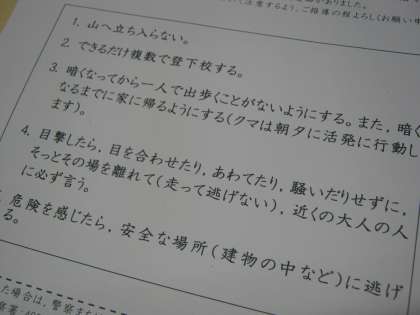 注意するよう，ご指導の程よろしくお願い申
1. 山へ立ち入らない。
2. できるだけ複数で登下校する。
3. 暗くなってから一人で出歩くことがないようにする。また，暗く
なるまでに家に帰るようにする(クマは朝夕に活発に行動し
ます)。
4. 目撃したら，目を合わせたり，あわてたり，騒いだりせずに，
そっとその場を離れて(走って逃げない)，近くの大人の人
に必ず言う。
危険を感じたら，安全な場所(建物の中など)に逃げ
る。
た場合は，警察また